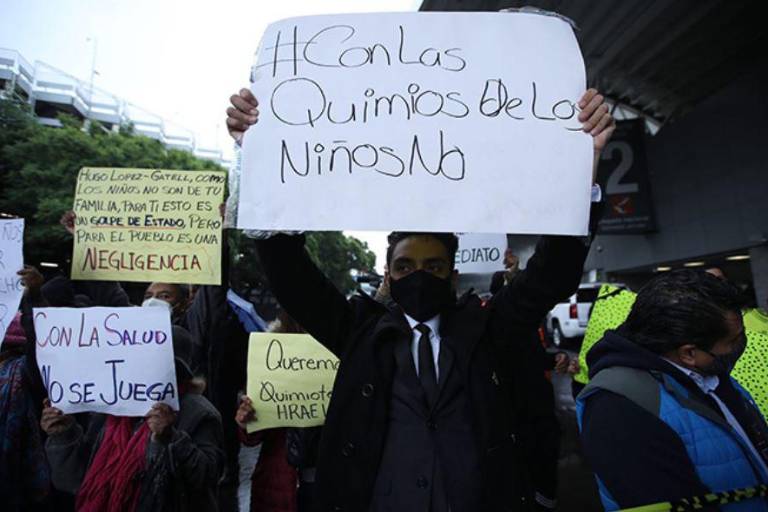 #ConLas
Quimios De Los
Niños No
Hugo Lopez-Gatell, como
los niños no son de tu
familia, para ti esto es
un golpe de Estado, pero
para el pueblo es una
Negligencia
Con La Salud
No se Juega
Queremo
Quimiote
HRAE
EDIATO
2